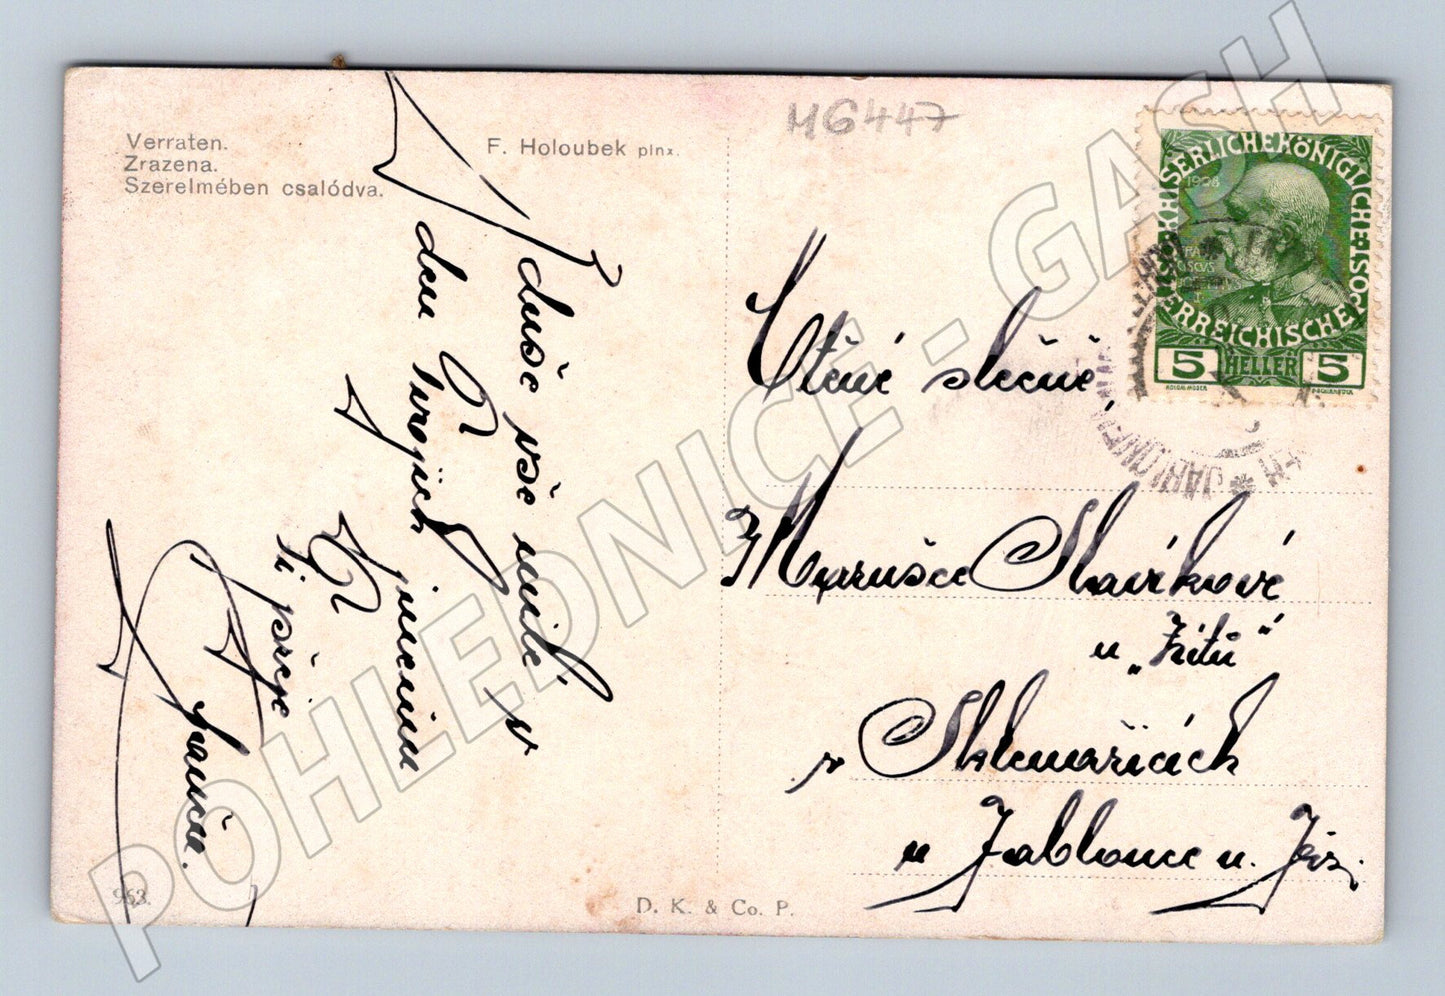 Verraten.
Zrazena.
Szerelmében csalódva.
F. Holoubek pinx.
M6447
KAISERLICHE KÖNIGLICHE
1908
ÖSTERREICHISCHE POST
5 HELLER 5
Z duše vše milé v
den Svých jmenin
Ti přeje
Ctěné slečně,
Marušce Slavíkové
u „Žitů“
v Sklenařicích
u Jablonce n. Jiz.
963.
D. K. & Co. P.
POHLEDNICE - GASH